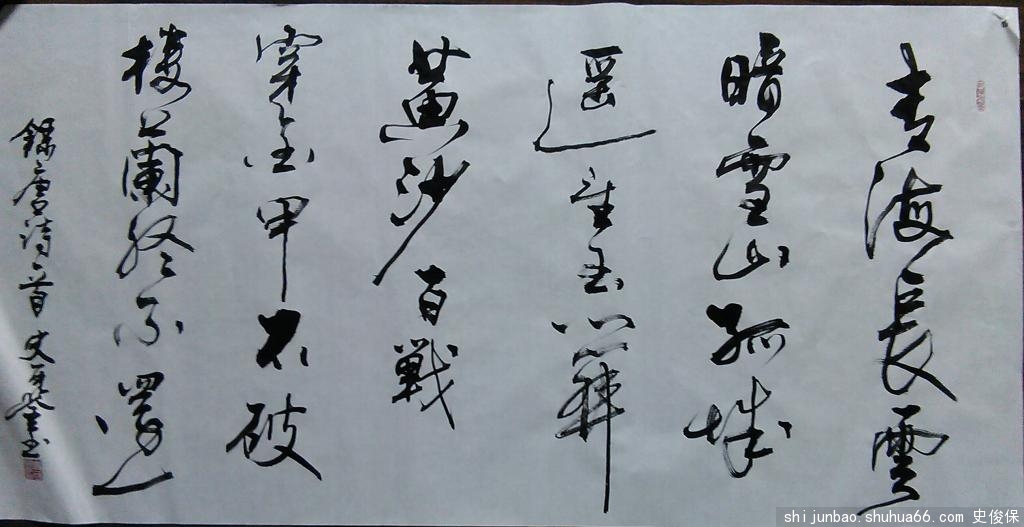 青海長雲
暗雪山孤城
遥望玉門關
黄沙百戰
穿金甲不破
樓蘭終不還
錄唐詩一首 史俊保书
shijunbao.shuhua66.com 史俊保